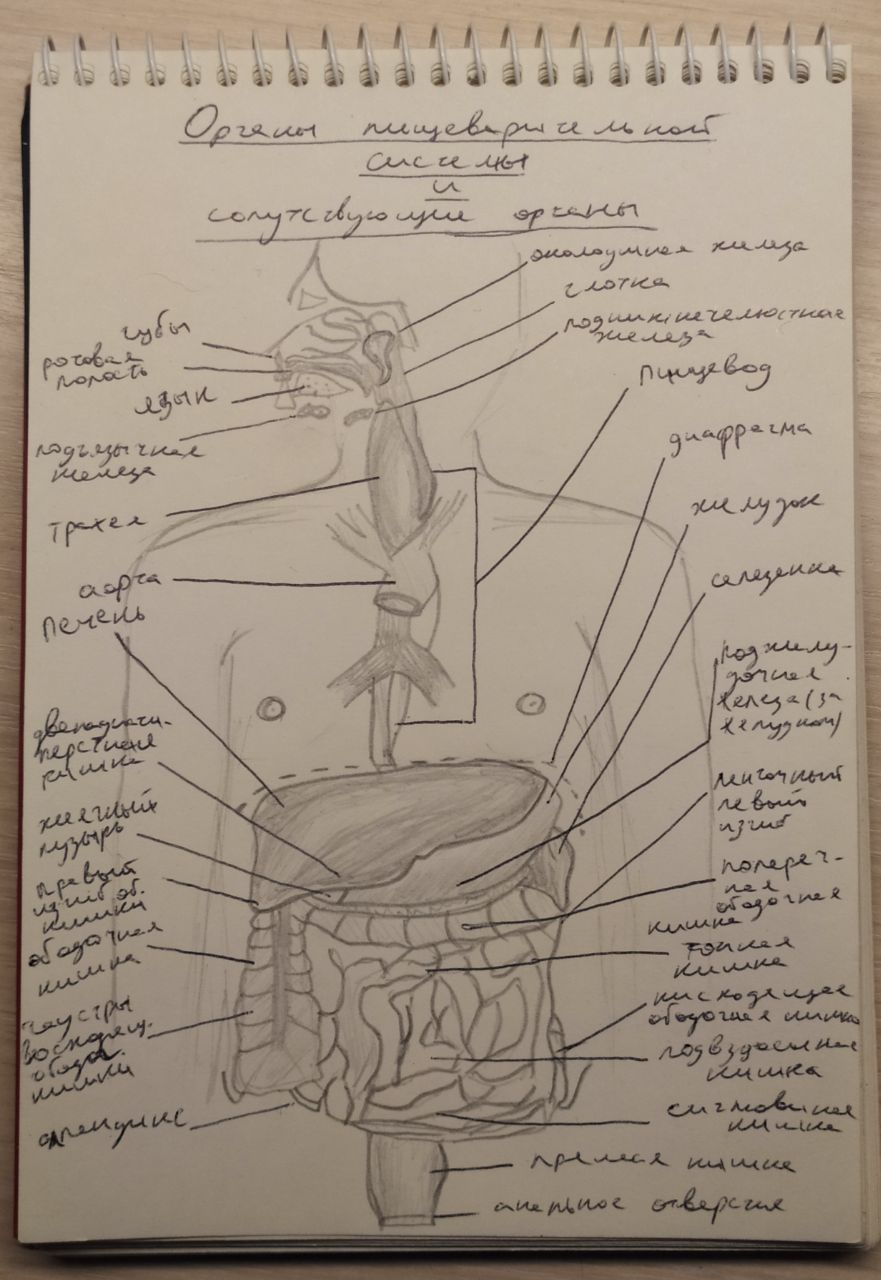 Органы пищеварительной
системы
и
сопутствующие органы
околоушная железа
глотка
поднижнечелюстная
железа
пищевод
диафрагма
желудок
селезенка
поджелу-
дочная
железа (за
желудком)
левый
изгиб
попереч-
ная
ободочная
кишка
тощая
кишка
нисходящая
ободочная кишка
подвздошная
кишка
сигмовидная
кишка
прямая кишка
анальное отверстие
губы
ротовая
полость
язык
подъязычная
железа
трахея
аорта
печень
двенадцати-
перстная
кишка
желчный
пузырь
правый
изгиб об.
кишки
ободочная
кишка
гаустры
восходящ.
ободоч.
кишки
аппендикс